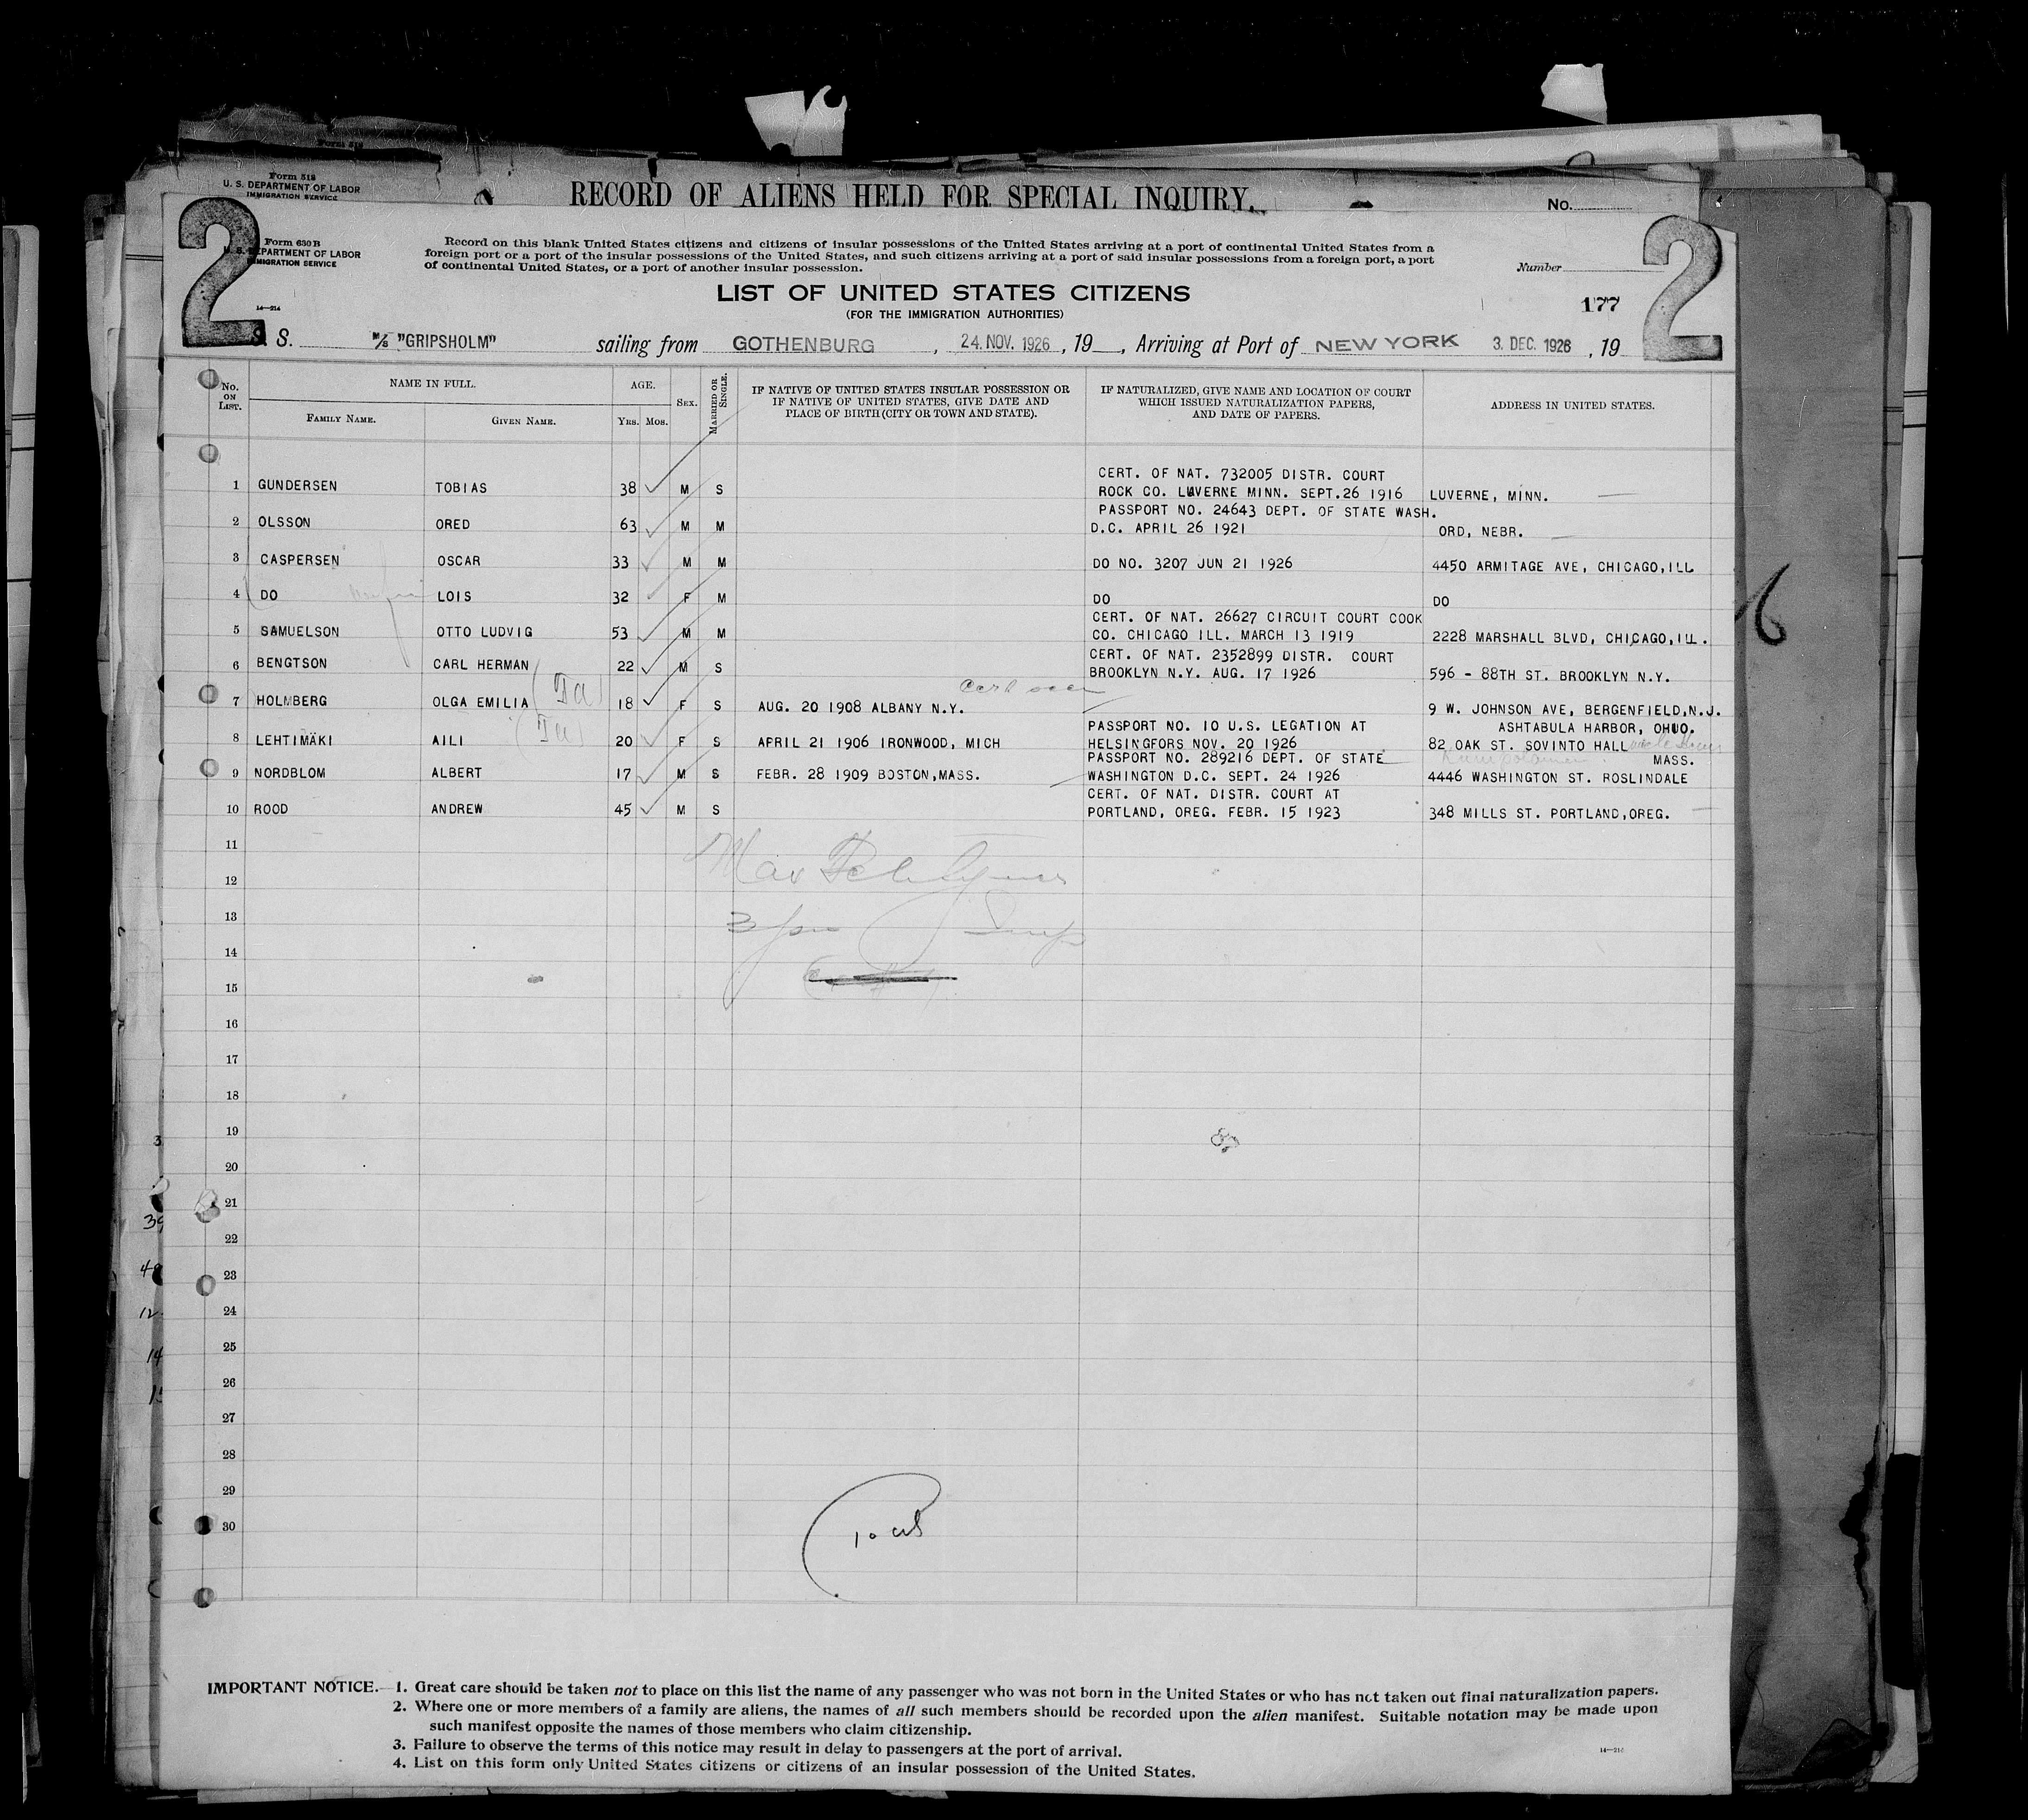 Form 518
U. S. DEPARTMENT OF LABOR
IMMIGRATION SERVICE
RECORD OF ALIENS HELD FOR SPECIAL INQUIRY.
No.
2
2
Form 630 B
U. S. DEPARTMENT OF LABOR
IMMIGRATION SERVICE
14—214
Record on this blank United States citizens and citizens of insular possessions of the United States arriving at a port of continental United States from a
foreign port or a port of the insular possessions of the United States, and such citizens arriving at a port of said insular possessions from a foreign port, a port
of continental United States, or a port of another insular possession.
Number
LIST OF UNITED STATES CITIZENS
(FOR THE IMMIGRATION AUTHORITIES)
177
S. S. M/S "GRIPSHOLM" sailing from GOTHENBURG, 24. NOV. 1926, 19 , Arriving at Port of NEW YORK 3. DEC. 1926, 19
No. ON LIST.
NAME IN FULL.
FAMILY NAME.
GIVEN NAME.
AGE.
YRS. MOS.
SEX.
MARRIED OR SINGLE.
IF NATIVE OF UNITED STATES INSULAR POSSESSION OR
IF NATIVE OF UNITED STATES, GIVE DATE AND
PLACE OF BIRTH (CITY OR TOWN AND STATE).
IF NATURALIZED, GIVE NAME AND LOCATION OF COURT
WHICH ISSUED NATURALIZATION PAPERS,
AND DATE OF PAPERS.
ADDRESS IN UNITED STATES.
CERT. OF NAT. 732005 DISTR. COURT
1 GUNDERSEN TOBIAS 38 M S ROCK CO. LUVERNE MINN. SEPT.26 1916 LUVERNE, MINN.
PASSPORT NO. 24643 DEPT. OF STATE WASH.
2 OLSSON ORED 63 M M D.C. APRIL 26 1921 ORD, NEBR.
3 CASPERSEN OSCAR 33 M M DO NO. 3207 JUN 21 1926 4450 ARMITAGE AVE, CHICAGO,ILL
4 DO LOIS 32 F M DO DO
CERT. OF NAT. 26627 CIRCUIT COURT COOK
5 SAMUELSON OTTO LUDVIG 53 M M CO. CHICAGO ILL. MARCH 13 1919 2228 MARSHALL BLVD, CHICAGO,ILL.
CERT. OF NAT. 2352899 DISTR. COURT
6 BENGTSON CARL HERMAN 22 M S BROOKLYN N.Y. AUG. 17 1926 596 - 88TH ST. BROOKLYN N.Y.
7 HOLMBERG OLGA EMILIA 18 F S AUG. 20 1908 ALBANY N.Y. 9 W. JOHNSON AVE, BERGENFIELD,N.J.
PASSPORT NO. 10 U.S. LEGATION AT ASHTABULA HARBOR, OHIO.
8 LEHTIMÄKI AILI 20 F S APRIL 21 1906 IRONWOOD, MICH HELSINGFORS NOV. 20 1926 82 OAK ST. SOVINTO HALL
PASSPORT NO. 289216 DEPT. OF STATE MASS.
9 NORDBLOM ALBERT 17 M S FEBR. 28 1909 BOSTON,MASS. WASHINGTON D.C. SEPT. 24 1926 4446 WASHINGTON ST. ROSLINDALE
CERT. OF NAT. DISTR. COURT AT
10 ROOD ANDREW 45 M S PORTLAND, OREG. FEBR. 15 1923 348 MILLS ST. PORTLAND,OREG.
11
12
13
14
15
16
17
18
19
20
21
22
23
24
25
26
27
28
29
30
IMPORTANT NOTICE.—1. Great care should be taken not to place on this list the name of any passenger who was not born in the United States or who has not taken out final naturalization papers.
2. Where one or more members of a family are aliens, the names of all such members should be recorded upon the alien manifest. Suitable notation may be made upon
such manifest opposite the names of those members who claim citizenship.
3. Failure to observe the terms of this notice may result in delay to passengers at the port of arrival.
4. List on this form only United States citizens or citizens of an insular possession of the United States.